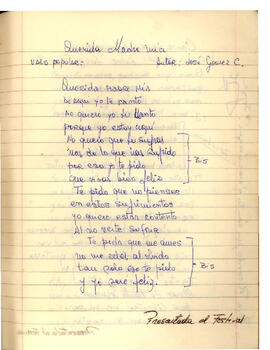 Querida Madre mia
vals popular: Autor: José Gomez C.
Querida madre mia
Aqui yo te canto
No quiero yo tu llanto
porque yo estoy aqui
No quiero que tu sufras
mas de lo que has sufrido
por eso yo te pido
que vivas bien feliz. Bis
Te pido que no pienses
en estos sufrimientos
yo quiero estar contento
Al no verte sufrir
Te pido que me ames
no me eches al olvido
tan solo eso te pido Bis
y yo seré feliz.
Presentada al Festival